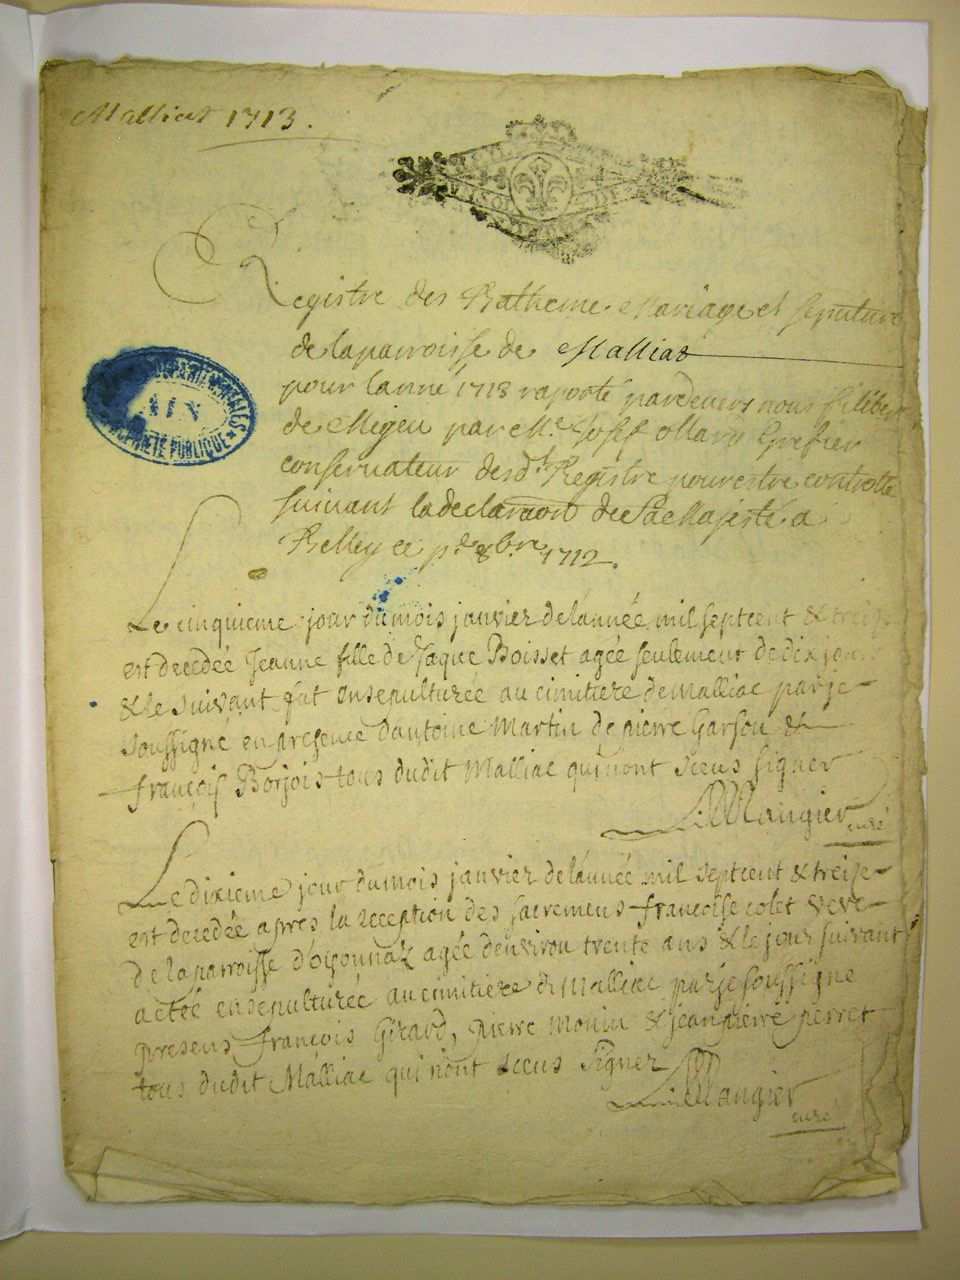 Malliat 1713.
Registre des Batheme Mariage et sepulture
de la parroisse de Malliat
pour lanne 1713 raporté pardevers nous filibert
de Migeu par Me Josef Mary Grefier
conservateur desdt Registre pour estre controlle
suivant la declaration de Sa Majesté a
Belley ce pr 8bre 1712.
ARCHIVES DEPARTEMENTALES
AIN
PROPRIETE PUBLIQUE
Le cinquieme jour du mois janvier de lannéé mil septcent & treize
est decedéé Jeanne fille de Jaque Boisset agéé seulement de dix jours
& le suivant fut ensepulturéé au cimitiere de Malliac par je
soussigné en presence dantoine Martin de pierre Garson &
françois Borjois tous dudit Malliac qui nont sceus signer
Mangier curé
Le dixieme jour du mois janvier de lannéé mil septcent & treize
est decedéé apres la reception des sacremens françoise colet veve
de la parroisse d'oyonnaz agéé denviron trente ans & le jour suivant
a etéé ensepulturéé au cimitiere de Malliac par je soussigne
presens françois Girard, pierre Monin & jeanpierre perret
tous dudit Malliac qui n'ont sceus signer
Mangier
curé